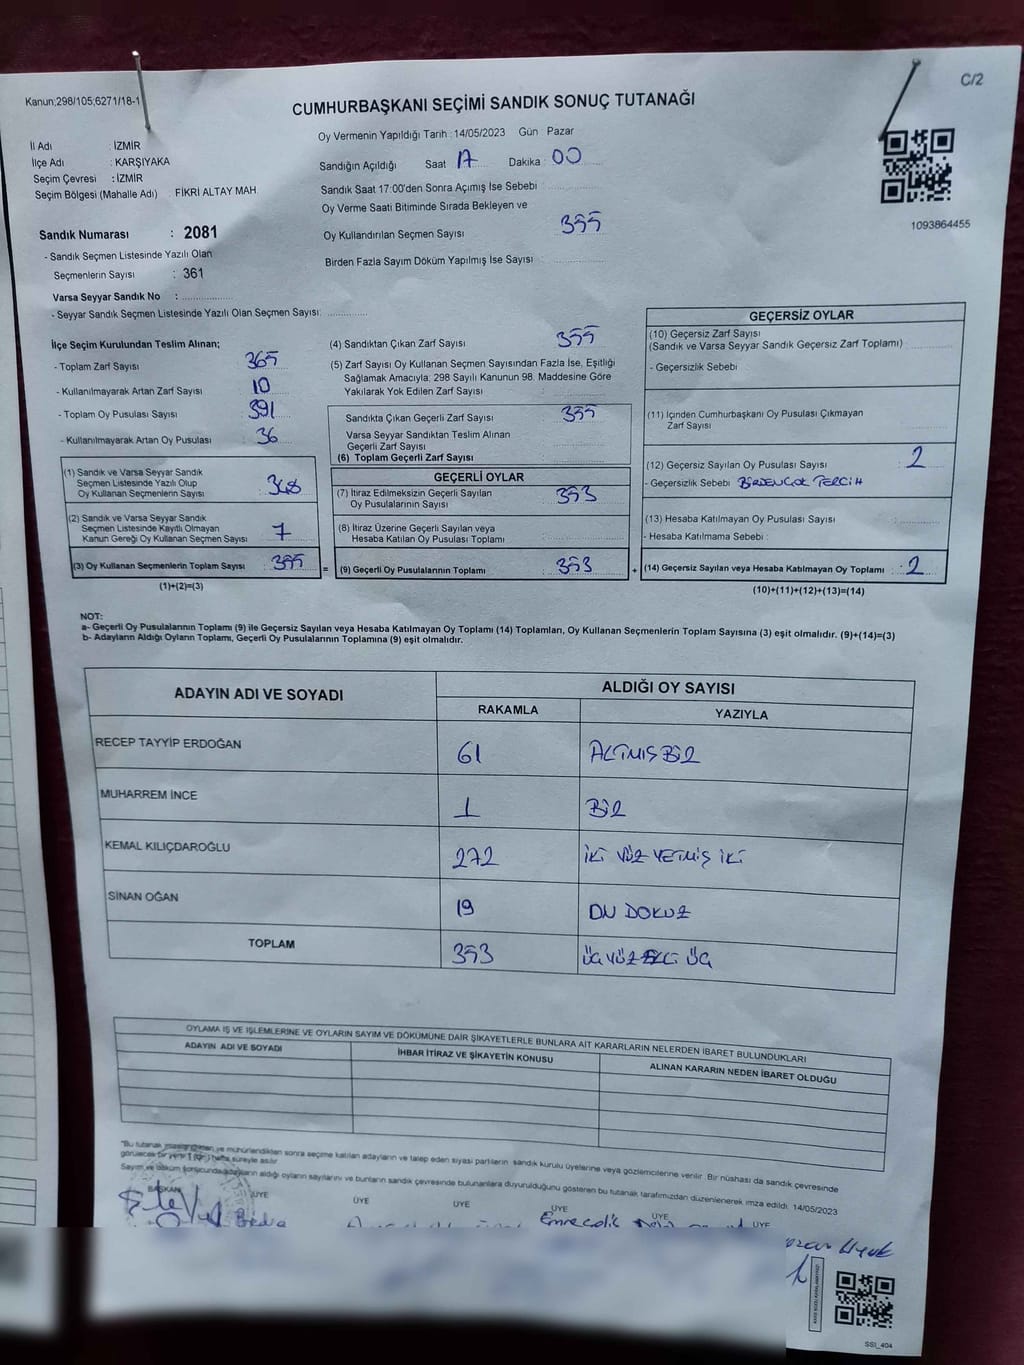 Kanun;298/105;6271/18-1
C/2
CUMHURBAŞKANI SEÇİMİ SANDIK SONUÇ TUTANAĞI
Oy Vermenin Yapıldığı Tarih : 14/05/2023 Gün Pazar
İl Adı : İZMİR
İlçe Adı : KARŞIYAKA
Seçim Çevresi : İZMİR
Seçim Bölgesi (Mahalle Adı) : FİKRİ ALTAY MAH.
Sandığın Açıldığı Saat 17 Dakika 00
Sandık Saat 17:00'den Sonra Açımış İse Sebebi :
Oy Verme Saati Bitiminde Sırada Bekleyen ve
Oy Kullandırılan Seçmen Sayısı : 355
Birden Fazla Sayım Döküm Yapılmış İse Sayısı :
1093864455
Sandık Numarası : 2081
- Sandık Seçmen Listesinde Yazılı Olan
Seçmenlerin Sayısı : 361
Varsa Seyyar Sandık No :
- Seyyar Sandık Seçmen Listesinde Yazılı Olan Seçmen Sayısı:
İlçe Seçim Kurulundan Teslim Alınan;
- Toplam Zarf Sayısı : 365
- Kullanılmayarak Artan Zarf Sayısı : 10
- Toplam Oy Pusulası Sayısı : 391
- Kullanılmayarak Artan Oy Pusulası : 36
(1) Sandık ve Varsa Seyyar Sandık
Seçmen Listesinde Yazılı Olup
Oy Kullanan Seçmenlerin Sayısı : 348
(2) Sandık ve Varsa Seyyar Sandık
Seçmen Listesinde Kayıtlı Olmayan
Kanun Gereği Oy Kullanan Seçmen Sayısı : 7
(3) Oy Kullanan Seçmenlerin Toplam Sayısı : 355
(1)+(2)=(3)
(4) Sandıktan Çıkan Zarf Sayısı : 355
(5) Zarf Sayısı Oy Kullanan Seçmen Sayısından Fazla İse, Eşitliği
Sağlamak Amacıyla; 298 Sayılı Kanunun 98. Maddesine Göre
Yakılarak Yok Edilen Zarf Sayısı :
Sandıkta Çıkan Geçerli Zarf Sayısı : 355
Varsa Seyyar Sandıktan Teslim Alınan
Geçerli Zarf Sayısı :
(6) Toplam Geçerli Zarf Sayısı :
GEÇERLİ OYLAR
(7) İtiraz Edilmeksizin Geçerli Sayılan
Oy Pusulalarının Sayısı : 353
(8) İtiraz Üzerine Geçerli Sayılan veya
Hesaba Katılan Oy Pusulası Toplamı :
= (9) Geçerli Oy Pusulalarının Toplamı : 353
GEÇERSİZ OYLAR
(10) Geçersiz Zarf Sayısı
(Sandık ve Varsa Seyyar Sandık Geçersiz Zarf Toplamı) :
- Geçersizlik Sebebi :
(11) İçinden Cumhurbaşkanı Oy Pusulası Çıkmayan
Zarf Sayısı :
(12) Geçersiz Sayılan Oy Pusulası Sayısı : 2
- Geçersizlik Sebebi BİRDEN ÇOK TERCİH
(13) Hesaba Katılmayan Oy Pusulası Sayısı :
- Hesaba Katılmama Sebebi :
+ (14) Geçersiz Sayılan veya Hesaba Katılmayan Oy Toplamı : 2
(10)+(11)+(12)+(13)=(14)
NOT:
a- Geçerli Oy Pusulalarının Toplamı (9) ile Geçersiz Sayılan veya Hesaba Katılmayan Oy Toplamı (14) Toplamları, Oy Kullanan Seçmenlerin Toplam Sayısına (3) eşit olmalıdır. (9)+(14)=(3)
b- Adayların Aldığı Oyların Toplamı, Geçerli Oy Pusulalarının Toplamına (9) eşit olmalıdır.
ADAYIN ADI VE SOYADI
ALDIĞI OY SAYISI
RAKAMLA YAZIYLA
RECEP TAYYİP ERDOĞAN 61 ALTMIŞ BİR
MUHARREM İNCE 1 BİR
KEMAL KILIÇDAROĞLU 272 İKİ YÜZ YETMİŞ İKİ
SİNAN OĞAN 19 ON DOKUZ
TOPLAM 353 ÜÇ YÜZ ELLİ ÜÇ
OYLAMA İŞ VE İŞLEMLERİNE VE OYLARIN SAYIM VE DÖKÜMÜNE DAİR ŞİKAYETLERLE BUNLARA AİT KARARLARIN NELERDEN İBARET BULUNDUKLARI
ADAYIN ADI VE SOYADI İHBAR İTİRAZ VE ŞİKAYETİN KONUSU ALINAN KARARIN NEDEN İBARET OLDUĞU
"Bu tutanak imzalandıktan ve mühürlendikten sonra seçime katılan adayların ve talep eden siyasi partilerin sandık kurulu üyelerine veya gözlemcilerine verilir. Bir nüshası da sandık çevresinde
görülecek bir yere 1 (bir) hafta süreyle asılır.
Sayım ve döküm sonucunda adayların aldığı oyların sayılarını ve bunların sandık çevresinde bulunanlara duyurulduğunu gösteren bu tutanak tarafımızdan düzenlenerek imza edildi. 14/05/2023
BAŞKAN ÜYE ÜYE ÜYE ÜYE ÜYE ÜYE
SSI_404